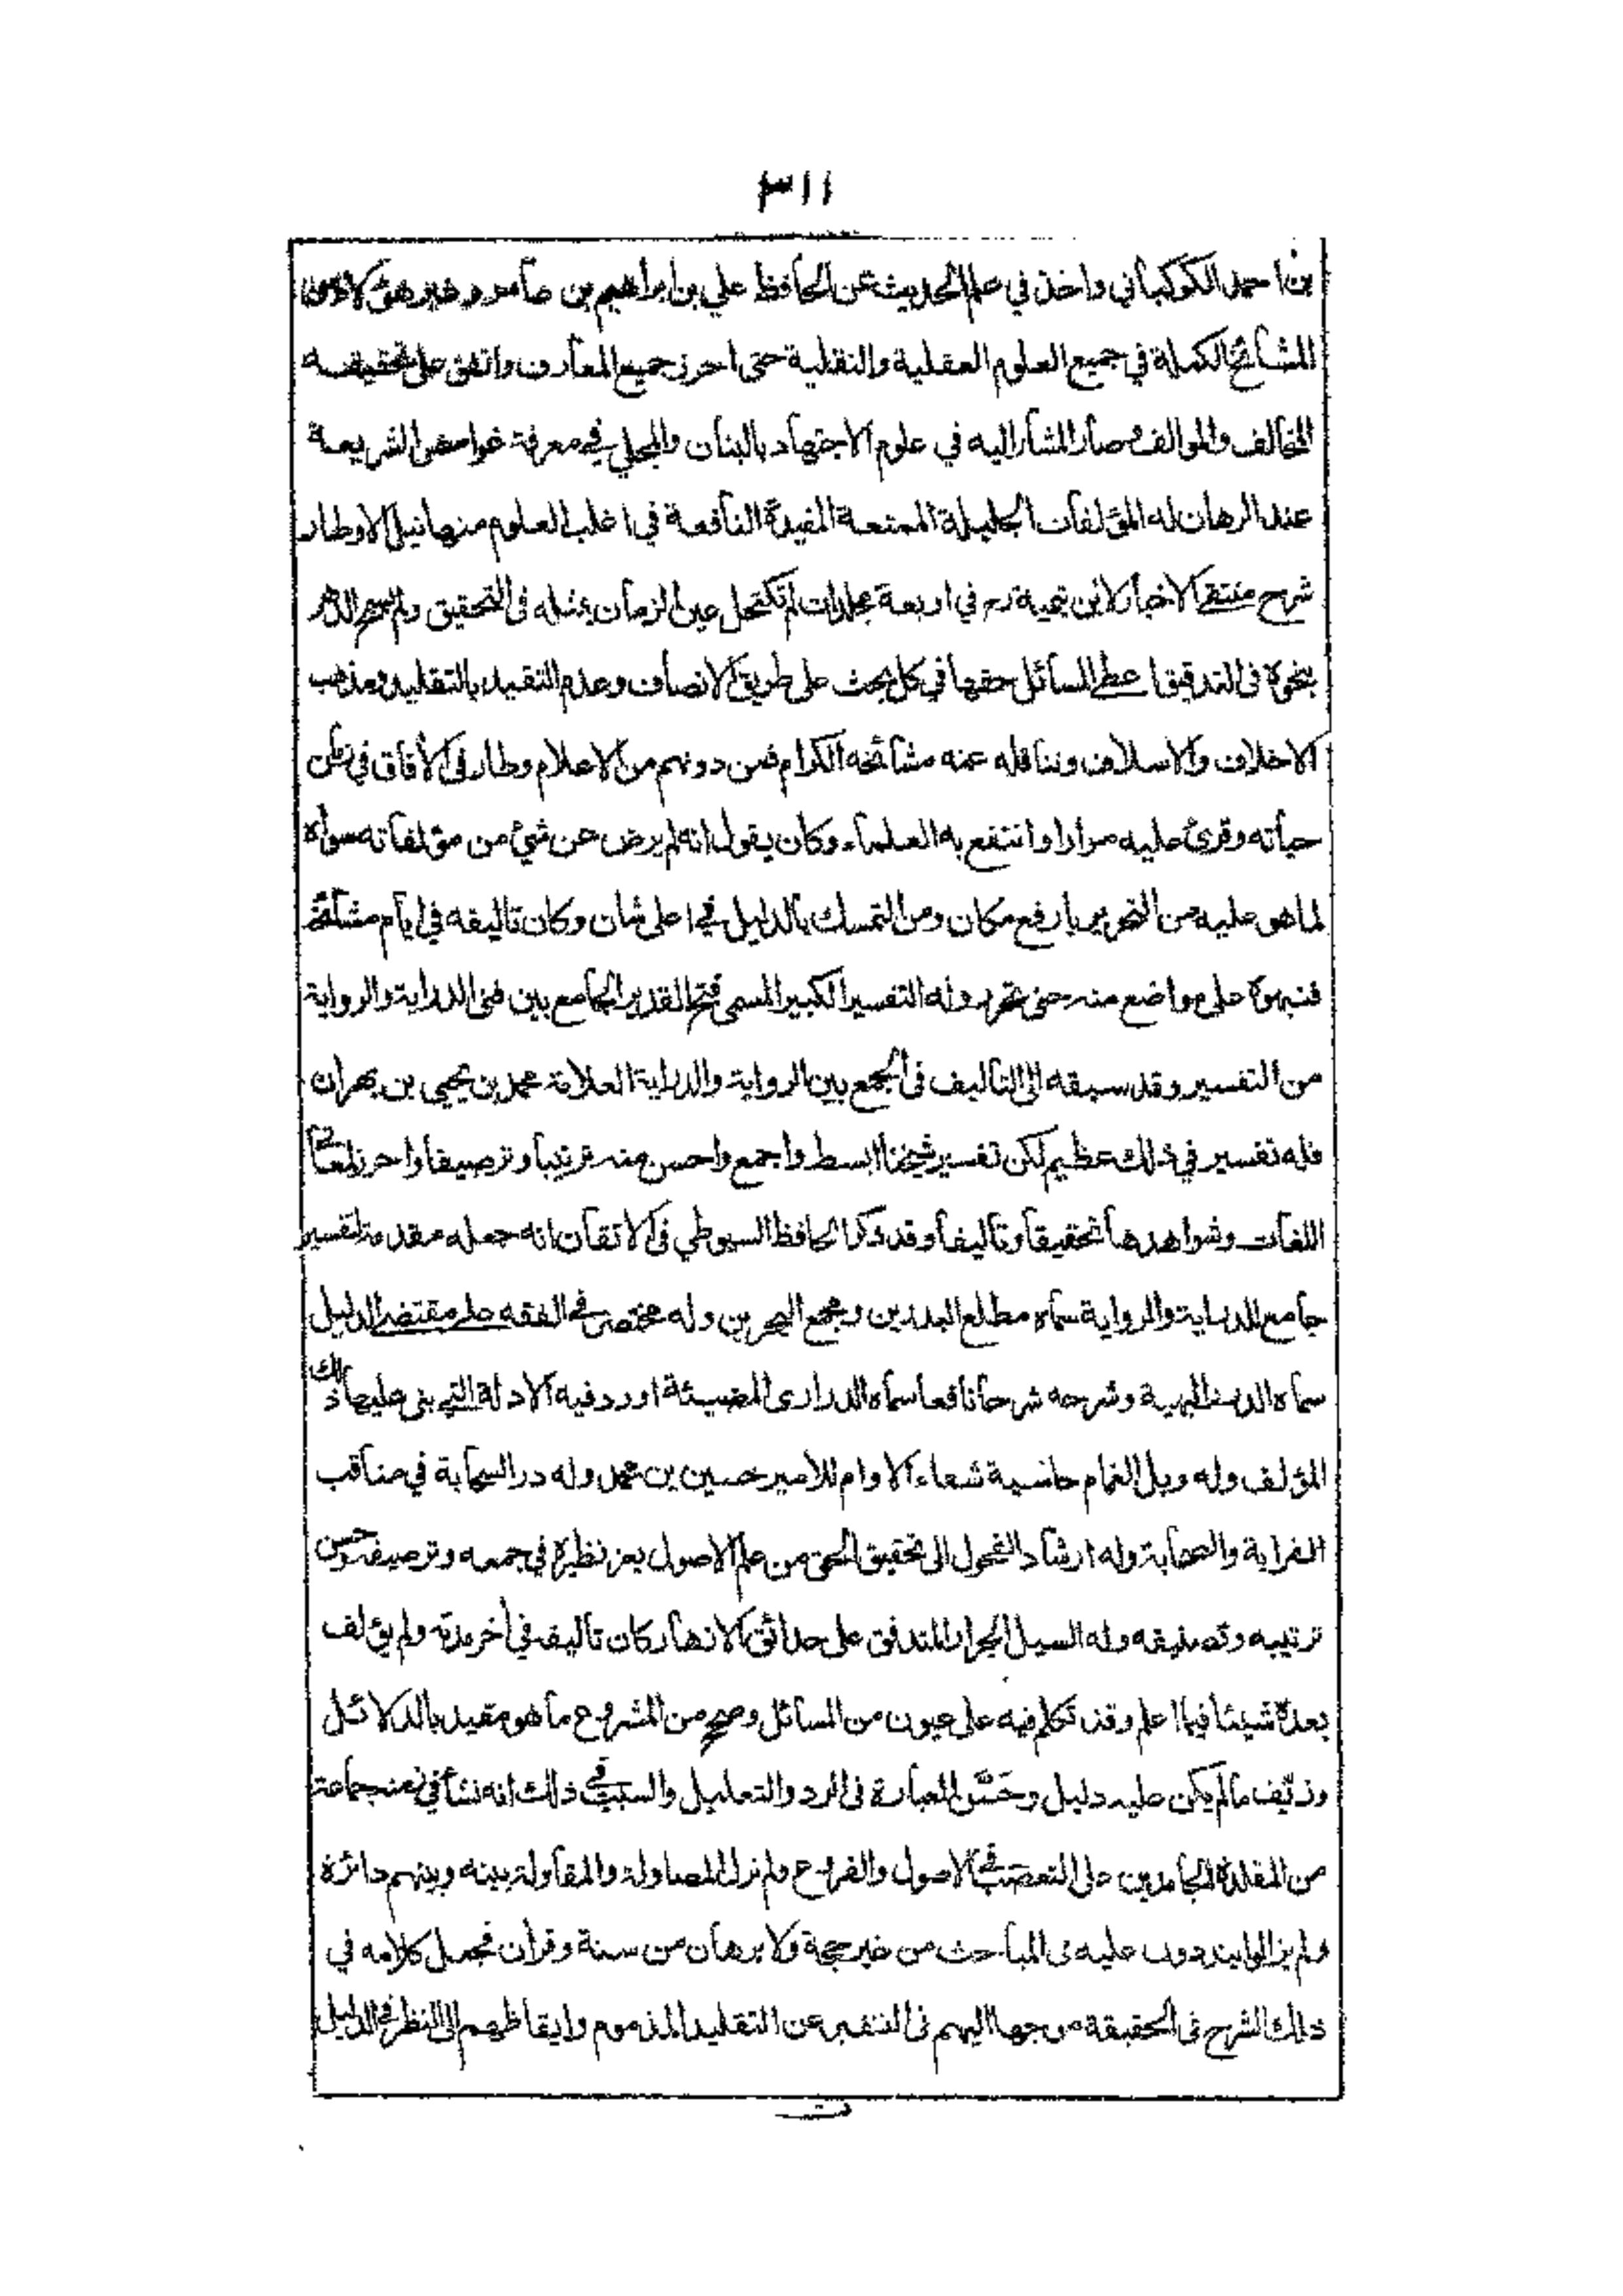 ٣١١
بن احمد الكوكباني واخذ في علم الحديث عن الحافظ علي بن ابراهيم بن عامر وغير هؤلاء من
المشائخ الكملة في جميع العلوم العقلية والنقلية حتى احرز جميع المعارف واتفق على تحقيقه
المخالف والموالف وصار المشار اليه في علوم الاجتهاد بالبنان والمجلي في معرفة غوامض الشريعة
عند الرهان له المؤلفات الجليلة الممتعة المفيدة النافعة في اغلب العلوم منها نيل الاوطار
شرح منتقى الاخبار لابن تيمية رح في اربعة مجلدات لم تكتحل عين الزمان بمثله في التحقيق ولم يسمح الدهر
بنحوه في التدقيق اعطى المسائل حقها في كل بحث على طريق الانصاف وعدم التقيد بالتقليد ومذهب
الاخلاف والاسلاف وتناقله عنه مشائخه الكرام فمن دونهم من الاعلام وطار في الآفاق في زمن
حياته وقرئ عليه مرارا وانتفع به العلماء وكان يقول انه لم يرض عن شيئ من مؤلفاته سواه
لما هو عليه من التحرير بارفع مكان ومن التمسك بالدليل في اعلى شان وكان تاليفه في ايام مشائخه
فنبهوه على مواضع منه حتى تحرر وله التفسير الكبير المسمى فتح القدير الجامع بين فني الدراية والرواية
من التفسير وقد سبقه الى التاليف في الجمع بين الرواية والدراية العلامة محمد بن يحيى بن بهران
فله تفسير في ذلك عظيم لكن تفسير شيخنا ابسط واجمع واحسن منه ترتيبا وترصيفا واحرز لمعاني
اللغات وشواهدها تحقيقا وتاليفا وقد ذكر الحافظ السيوطي في الاتقان انه جعله مقدمة لتفسير
جامع للدراية والرواية سماه مطلع البدرين ومجمع البحرين وله مختصر في الفقه على مقتضى الدليل
سماه الدرر البهية وشرحه شرحا نافعا سماه الدراري المضيئة اورد فيه الادلة التي بنى عليها ذلك
المؤلف وله وبل الغمام حاشية شفاء الاوام للامير حسين بن محمد وله در السحابة في مناقب
القرابة والصحابة وله ارشاد الفحول الى تحقيق الحق من علم الاصول يعز نظيره في جمعه وترصيفه وحسن
ترتيبه وتصنيفه وله السيل الجرار المتدفق على حدائق الازهار كان تاليفه في آخر مدته ولم يؤلف
بعده شيئا فيما اعلم وقد تكلم فيه على عيون من المسائل وصحح من المشروع ما هو مقيد بالدلائل
وزيّف ما لم يكن عليه دليل وخشّن العبارة في الرد والتعليل والسبب في ذلك انه نشأ في زمنه جماعة
من المقلدة الجامدين على التعصب في الاصول والفروع ولم تزل المصاولة والمقاولة بينه وبينهم دائرة
ولم يزالوا ينددون عليه في المباحث من غير حجة ولا برهان من سنة وقرآن فجعل كلامه في
ذلك الشرح في الحقيقة موجها اليهم في التنفير عن التقليد المذموم وايقاظهم الى النظر في الدليل